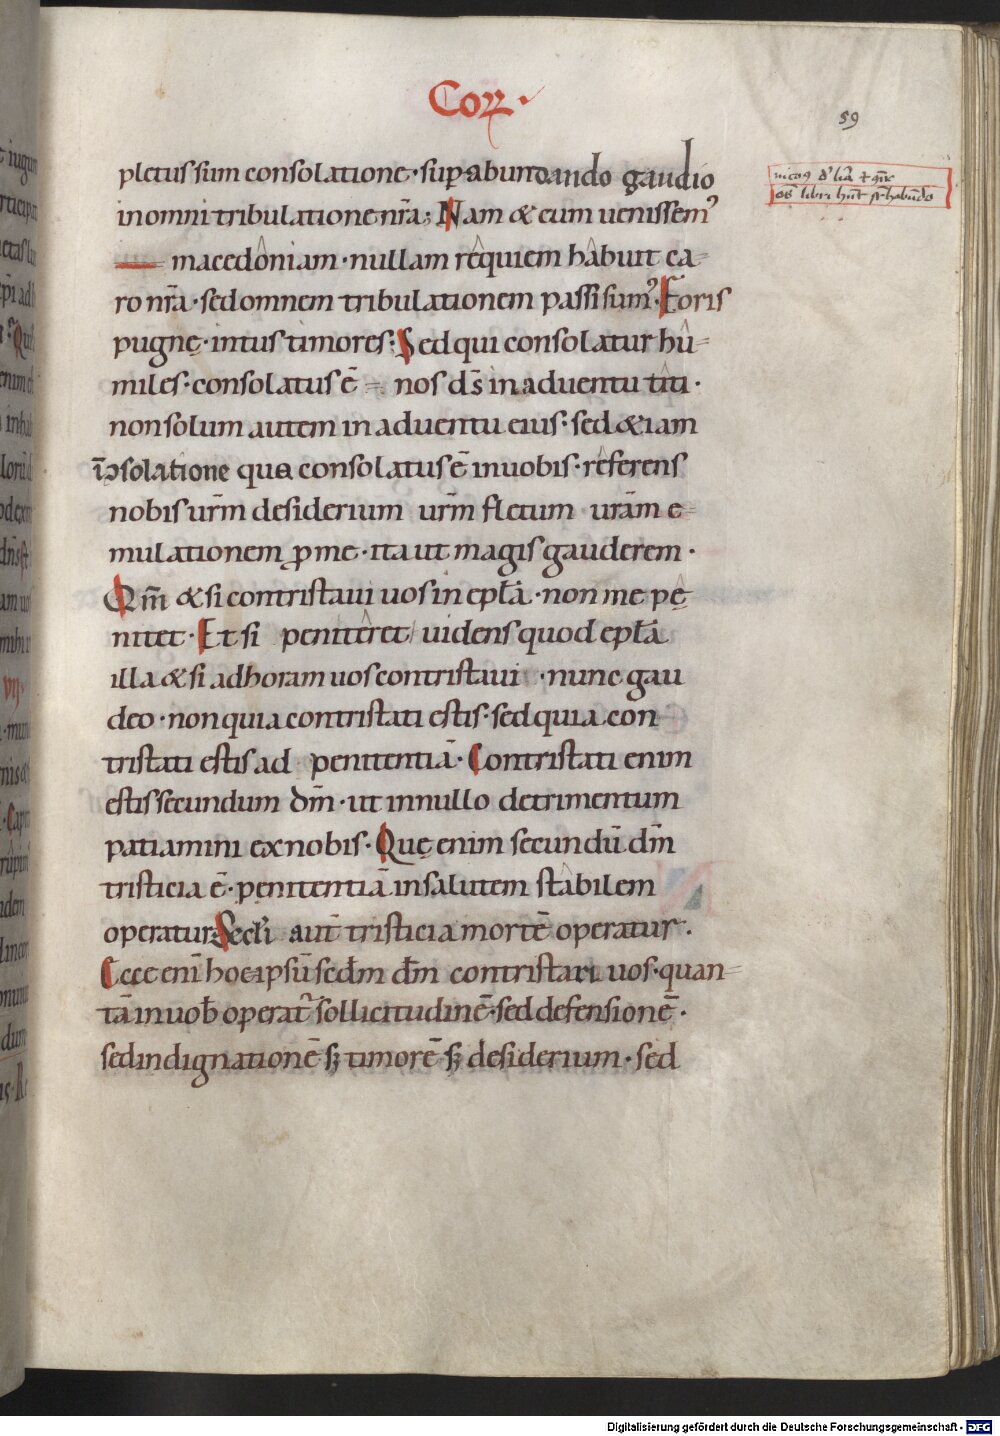 Corꝝ·
59
pletus sum consolatione · sup̱abundando gaudio
in omni tribulatione nr̄a; Nam & cum uenissem᷒
macedôniam · nullam rêquiem hâbuit ca=
ro nr̄a · sed omnem tribulationem passi sum᷒. Foris
pugnę · intus timores; Sed qui consolatur hû=
miles · consolatus ē = nos ds̄ in aduentu titi ·
non solum autem in aduentu eius · sed & iam
ī ɔsolatione qua consolatus ē in uobis · rêferens
nobis ur̄m desiderium ur̄m fletum · urām e=
mulationem ꝓ me · ita ut magis gauderem ·
Qm̄ & si contristaui uos in epła · non me pę
nitet · Et si penitêret uidens quod epła
illa & si ad horam uos contristaui · nunc gau
deo · non quia contristati estis · sed quia con
tristati estis ad penitentiā · Contristati enim
estis secundum dm̄ · ut in nullo detrimentum
patiamini ex nobis · Quę enim secundū dm̄
tristicia ē · penitentiā in salutem stâbilem
operatur; Sećli aut̄ tristicia mortē operatur ·
Ecce eni hoc ipsū sedm dm̄ contristari uos · quan=
tā in uob̄ operat᷑ sollicitudinē · sed defensionē ·
sed indignationē sꝫ timorē sꝫ desiderium · sed
Digitalisierung gefördert durch die Deutsche Forschungsgemeinschaft - DFG